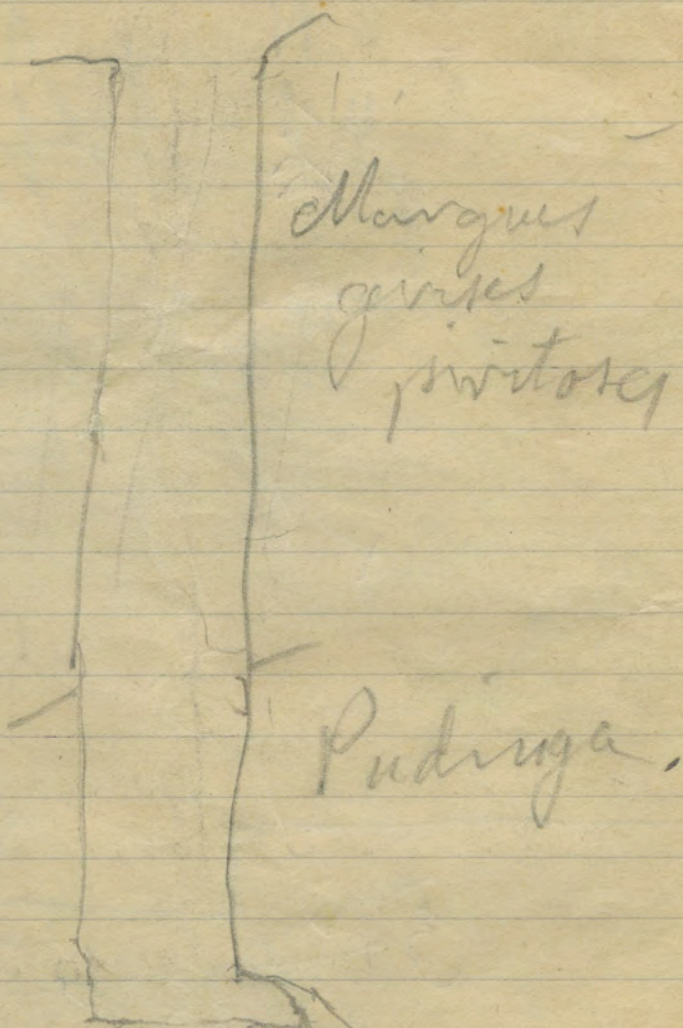 Margues
grises
piritoses
Pudinga.